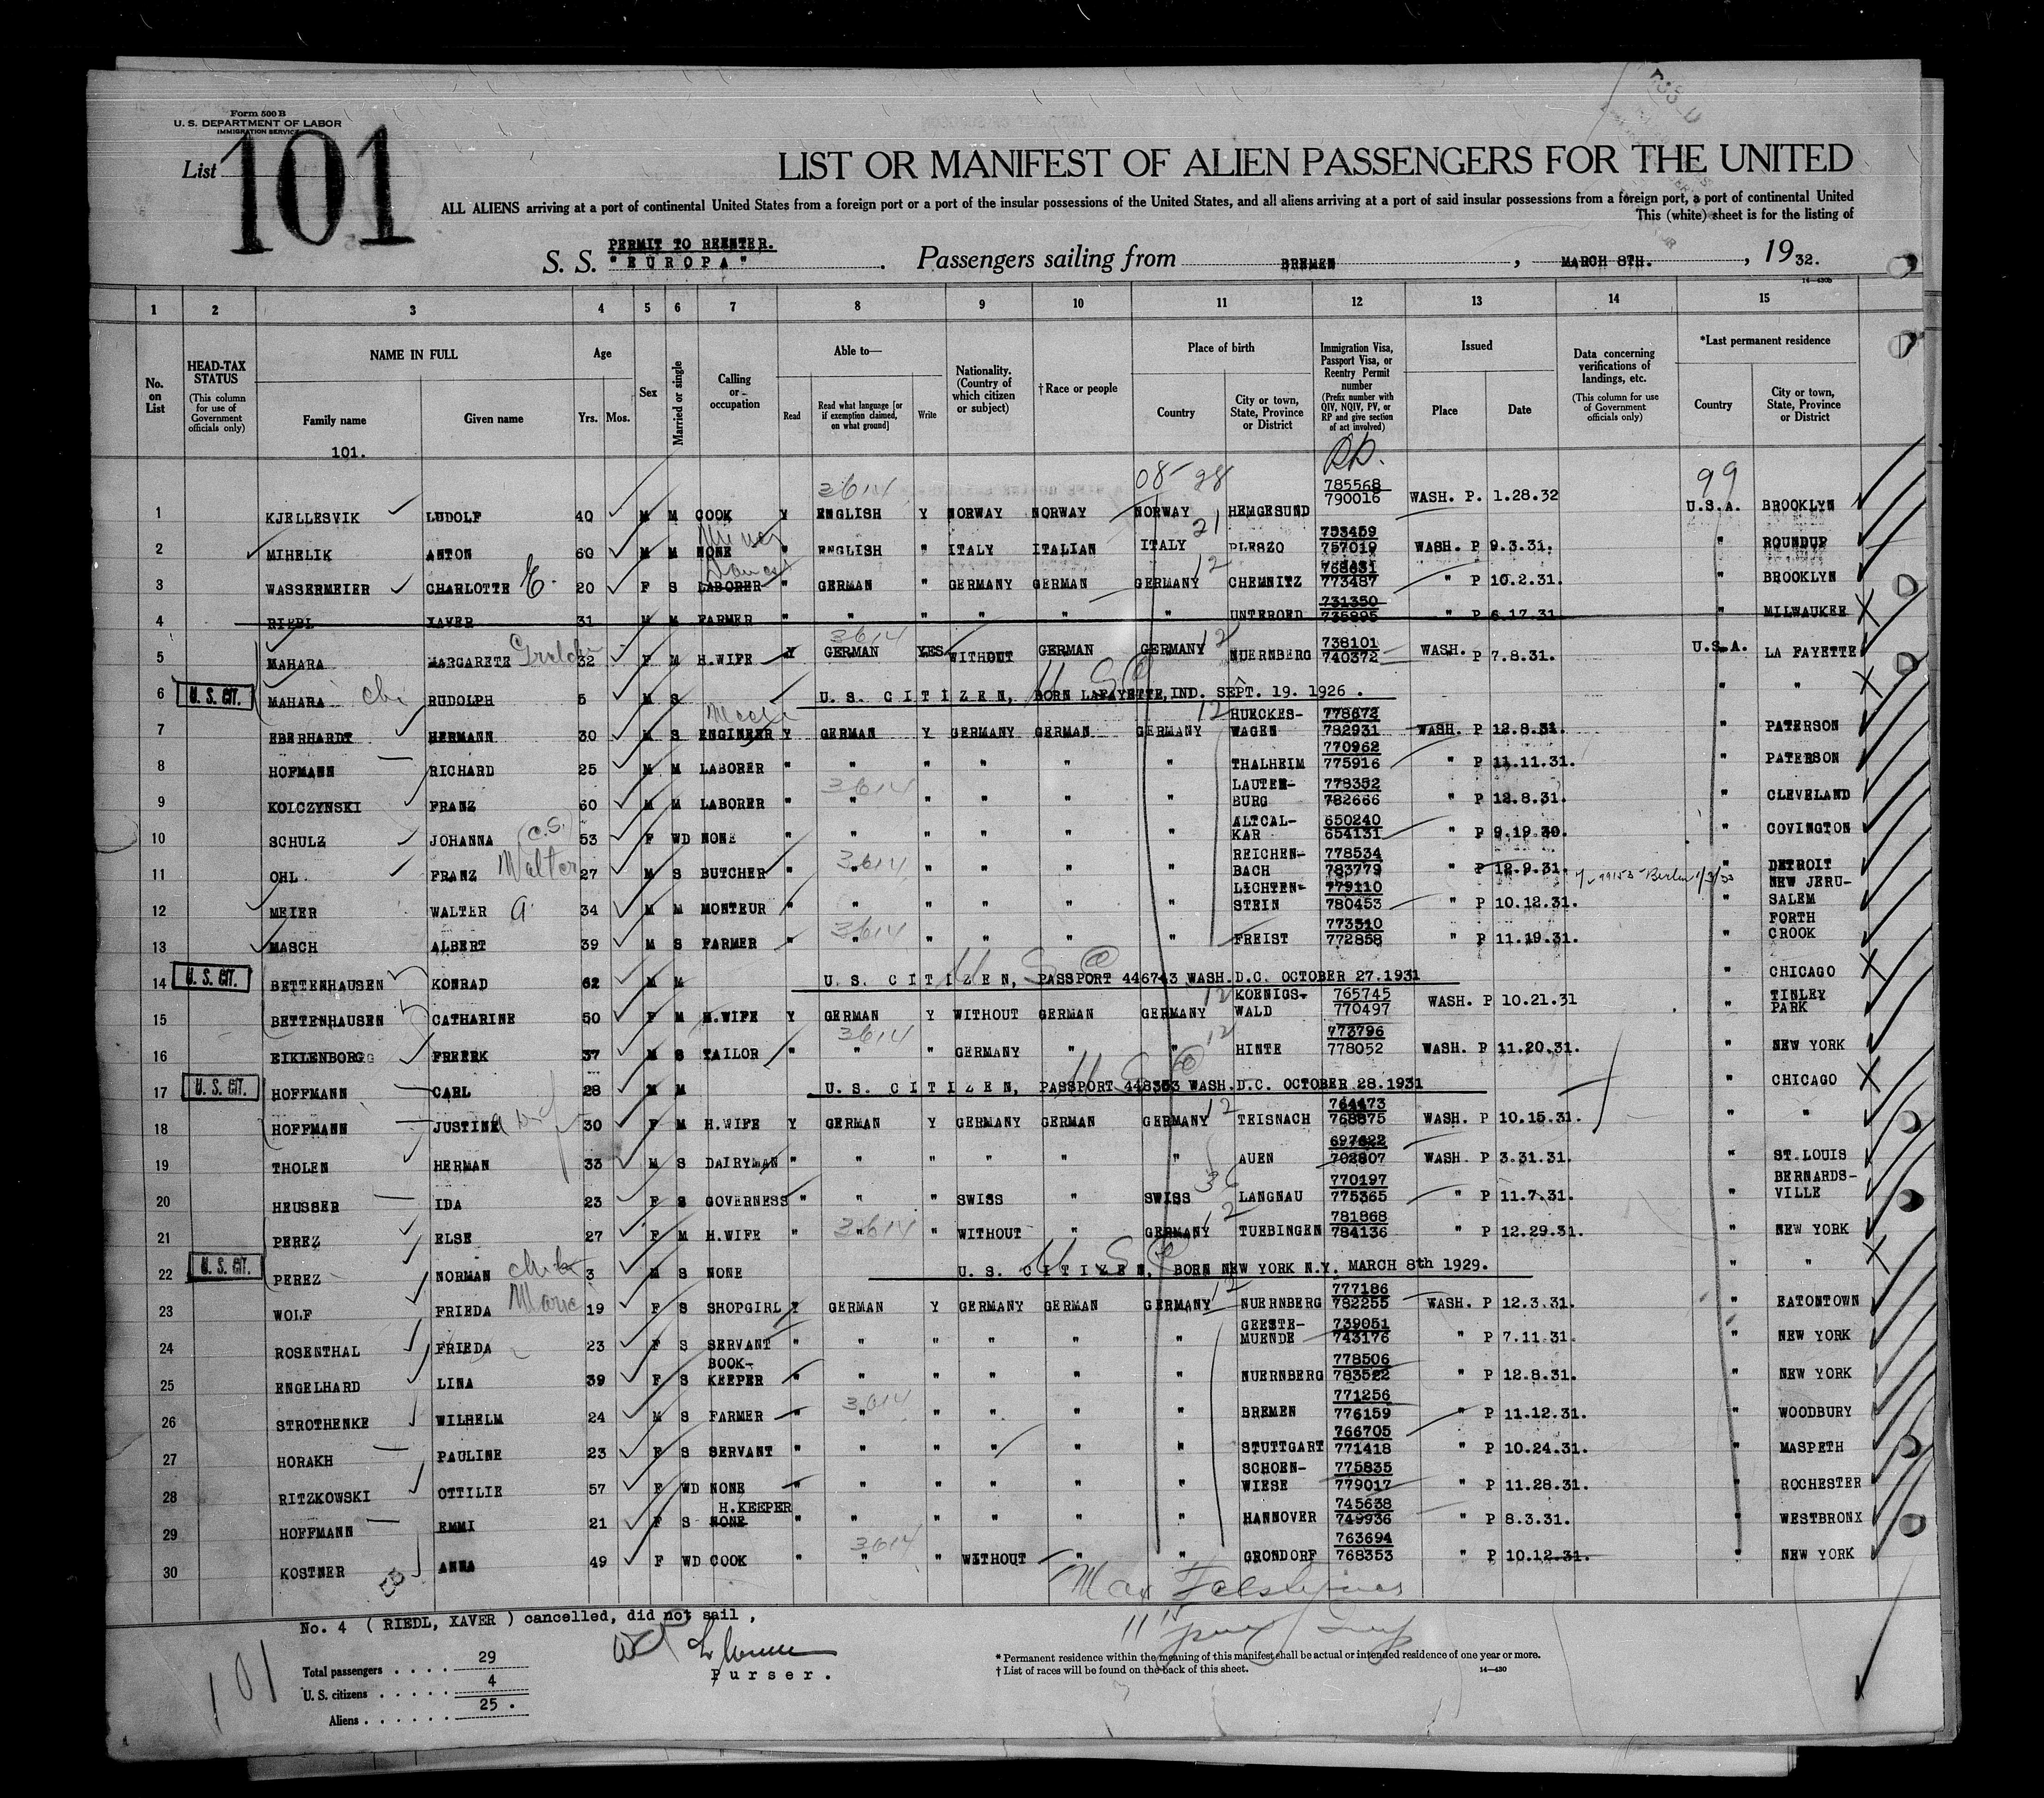 Form 500 B
U. S. DEPARTMENT OF LABOR
IMMIGRATION SERVICE
List 101
LIST OR MANIFEST OF ALIEN PASSENGERS FOR THE UNITED
ALL ALIENS arriving at a port of continental United States from a foreign port or a port of the insular possessions of the United States, and all aliens arriving at a port of said insular possessions from a foreign port, a port of continental United
This (white) sheet is for the listing of
PERMIT TO REENTER.
S. S. "EUROPA" Passengers sailing from BREMEN, MARCH 8TH., 1932.
1 2 3 4 5 6 7 8 9 10 11 12 13 14 15
No. on List
HEAD-TAX STATUS (This column for use of Government officials only)
NAME IN FULL Family name Given name
Age Yrs. Mos.
Sex
Married or single
Calling or occupation
Able to— Read Read what language [or if exemption claimed, on what ground] Write
Nationality. (Country of which citizen or subject)
† Race or people
Place of birth Country City or town, State, Province or District
Immigration Visa, Passport Visa, or Reentry Permit number (Prefix number with QIV, NQIV, PV, or RP and give section of act involved)
Issued Place Date
Data concerning verifications of landings, etc. (This column for use of Government officials only)
*Last permanent residence Country City or town, State, Province or District
101.
3614 08- 28 99
1 KJELLESVIK LUDOLF 40 M M COOK Y ENGLISH Y NORWAY NORWAY NORWAY HEMGESUND 785568 790016 WASH. P. 1.28.32 U.S.A. BROOKLYN
2 MIHELIK ANTON 60 M M NONE Miner " ENGLISH " ITALY ITALIAN ITALY 21 PLESZO 753459 757019 WASH. P 9.3.31. " ROUNDUP
3 WASSERMEIER CHARLOTTE E. 20 F S LABORER " GERMAN " GERMANY GERMAN GERMANY 12 CHEMNITZ 768631 773487 " P 10.2.31. " BROOKLYN
4 RIEDL XAVER 31 M M FARMER " " " " " " UNTEROED 731350 735895 " P 6.17.31 " MILWAUKEE
5 MAHARA MARGARETE 32 F M H.WIFE Y GERMAN 3614 YES WITHOUT GERMAN GERMANY 12 NUERNBERG 738101 740372 WASH. " P 7.8.31. U.S.A. LA FAYETTE
6 U. S. CIT. MAHARA ch. RUDOLPH 5 M S U. S. CITIZEN, BORN LAFAYETTE, IND. SEPT. 19. 1926. " "
7 EBERHARDT HERMANN 30 M S ENGINEER Y GERMAN Y GERMANY GERMAN GERMANY 12 HUECKES-WAGEN 778672 782931 WASH. P 12.8.31. " PATERSON
8 HOFMANN RICHARD 25 M M LABORER " " " " " " THALHEIM 770962 775916 " P 11.11.31. " PATERSON
9 KOLCZYNSKI FRANZ 60 M M LABORER " 3614 " " " " " LAUTEN-BURG 778352 782666 " P 12.8.31. " CLEVELAND
10 SCHULZ JOHANNA (C.S.) 53 F WD NONE " " " " " " ALTCAL-KAR 650240 654131 " P 9.19.30. " COVINGTON
11 OHL. FRANZ Walter 27 M S BUTCHER " 3614 " " " " " REICHEN-BACH 778534 783779 " P 12.9.31. " DETROIT
12 MEIER WALTER A. 34 M M MONTEUR " " " " " " LICHTEN-STEIN 779110 780453 " P 10.12.31. " NEW JERU-SALEM
13 MASCH ALBERT 39 M S FARMER " 3614 " " " " " FREIST 773310 772858 " P 11.19.31. " FORTH CROOK
14 U. S. CIT. BETTENHAUSEN KONRAD 62 M M U. S. CITIZEN, PASSPORT 446743 WASH.D.C. OCTOBER 27.1931 " CHICAGO
15 BETTENHAUSEN CATHARINE 50 F M H.WIFE Y GERMAN Y WITHOUT GERMAN GERMANY 12 KOENIGS-WALD 765745 770497 WASH. P 10.21.31 " TINLEY PARK
16 EIKLENBORG FREERK 37 M S TAILOR " 3614 " " GERMANY " " 12 HINTE 773796 778052 WASH. P 11.20.31. " NEW YORK
17 U. S. CIT. HOFFMANN CARL 28 M M U. S. CITIZEN, PASSPORT 448363 WASH.D.C. OCTOBER 28.1931 " CHICAGO
18 HOFFMANN JUSTINE 30 F M H.WIFE Y GERMAN Y GERMANY GERMAN GERMANY 12 TEISNACH 764473 768875 WASH. P 10.15.31. " "
19 THOLEN HERMAN 33 M S DAIRYMAN " " " " " " AUEN 697622 702807 WASH. P 3.31.31. " ST.LOUIS
20 HEUSSER IDA 23 F S GOVERNESS " " " SWISS " SWISS 36 LANGNAU 770197 775365 " P 11.7.31. " BERNARDS-VILLE
21 PEREZ ELSE 27 F M H.WIFE " 3614 " " WITHOUT " GERMANY 12 TUEBINGEN 781868 784136 " P 12.29.31. " NEW YORK
22 U. S. CIT. PEREZ NORMAN 3 M S NONE U. S. CITIZEN, BORN NEW YORK N.Y. MARCH 8th 1929. " "
23 WOLF FRIEDA Marie 19 F S SHOPGIRL Y GERMAN Y GERMANY GERMAN GERMANY 12 NUERNBERG 777186 782255 WASH. P 12.3.31. " EATONTOWN
24 ROSENTHAL FRIEDA 23 F S SERVANT " " " " " " GEESTE-MUENDE 739051 743176 " P 7.11.31. " NEW YORK
25 ENGELHARD LINA 39 F S BOOK-KEEPER " " " " " " NUERNBERG 778506 783522 " P 12.8.31. " NEW YORK
26 STROTHENKE WILHELM 24 M S FARMER " 3614 " " " " " BREMEN 771256 776159 " P 11.12.31. " WOODBURY
27 HORAKH PAULINE 23 F S SERVANT " " " " " " STUTTGART 766705 771418 " P 10.24.31. " MASPETH
28 RITZKOWSKI OTTILIE 57 F WD NONE " " " " " " SCHOEN-WIESE 775835 779017 " P 11.28.31. " ROCHESTER
29 HOFFMANN EMMI 21 F S H.KEEPER NONE " " " " " " HANNOVER 745638 749936 " P 8.3.31. " WESTBRONX
30 KOSTNER ANNA 49 F WD COOK " 3614 " " WITHOUT " " GRONDORF 763694 768353 " P 10.12.31. " NEW YORK
No. 4 ( RIEDL, XAVER ) cancelled, did not sail,
Purser.
101
Total passengers . . . . 29
U. S. citizens . . . . . 4
Aliens . . . . . . 25.
* Permanent residence within the meaning of this manifest shall be actual or intended residence of one year or more.
† List of races will be found on the back of this sheet. 14—430